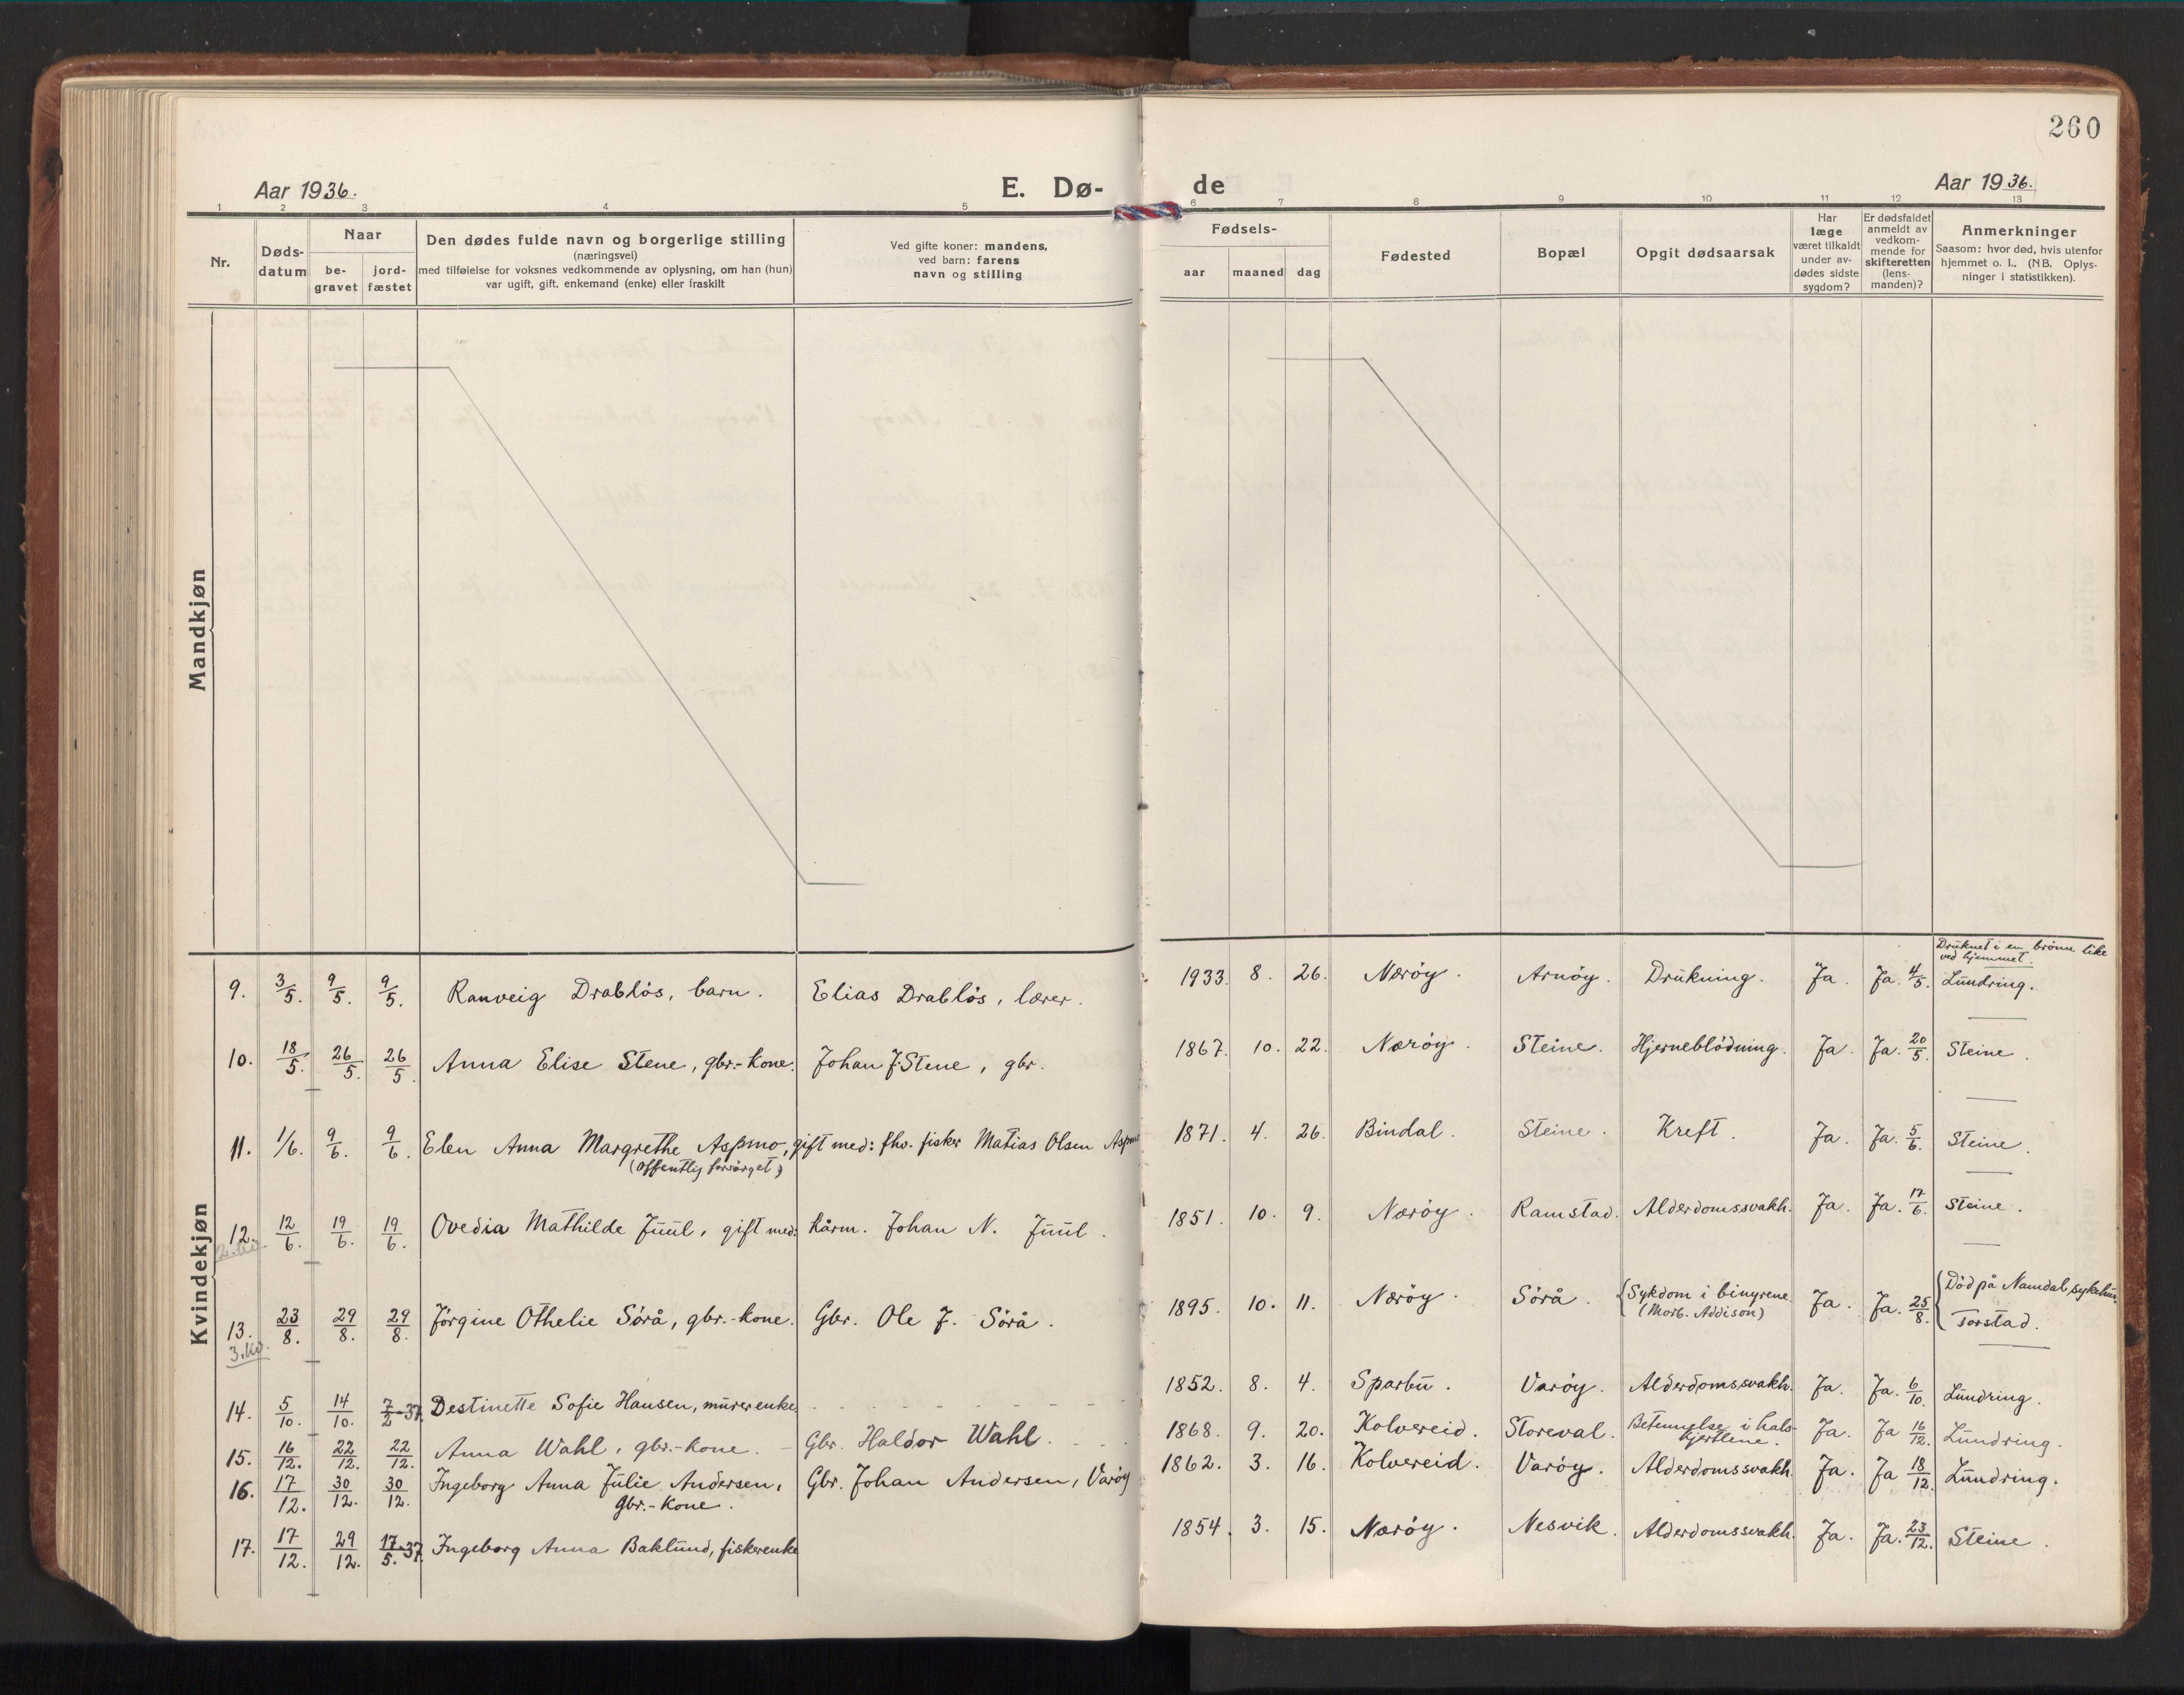 260
Aar 1936.
E. Dø-
de
Aar 1936.
1 2 3 4 5 6 7 8 9 10 11 12 13
Nr.
Døds-
datum
Naar
be-
gravet
jord-
fæstet
Den dødes fulde navn og borgerlige stilling
(næringsvei)
med tilføielse for voksnes vedkommende av oplysning, om han (hun)
var ugift, gift, enkemand (enke) eller fraskilt
Ved gifte koner: mandens,
ved barn: farens
navn og stilling
Fødsels-
aar maaned dag
Fødested
Bopæl
Opgit dødsaarsak
Har
læge
været tilkaldt
under av-
dødes sidste
sygdom?
Er dødsfaldet
anmeldt av
vedkom-
mende for
skifteretten
(lens-
manden)?
Anmerkninger
Saasom: hvor død, hvis utenfor
hjemmet o. l., (NB. Oplys-
ninger i statistikken).
Mandkjøn
Kvindekjøn
Druknet i en brönn like
ved hjemmet.
9. 3/5. 9/5. 9/5. Ranveig Drabløs, barn. Elias Drabløs, lærer. 1933. 8. 26. Nærøy. Arnøy. Drukning. Ja. Ja. 4/5. Lundring.
10. 18/5. 26/5. 26/5. Anna Elise Stene, gbr.-kone. Johan J. Stene, gbr. 1867. 10. 22. Nærøy. Steine. Hjerneblödning. Ja. Ja. 20/5. Steine.
11. 1/6. 9/6. 9/6. Elen Anna Margrethe Aspmo, gift med: fhv. fisker Matias Olsen 1871. 4. 26. Bindal. Steine. Kreft. Ja. Ja. 5/6. Steine.
(offentlig forsörget)
12. 12/6. 19/6. 19/6. Ovedia Mathilde Juul, gift med: kårm. Johan N. Juul. 1851. 10. 9. Nærøy. Ramstad. Alderdomssvakh. Ja. Ja. 17/6. Steine.
13. 23/8. 29/8. 29/8. Jörgine Othelie Sörå, gbr.-kone. Gbr. Ole J. Sörå. 1895. 10. 11. Nærøy. Sörå. Sykdom i binyrene. Ja. Ja. 25/8. Död på Namdal sykehus.
3. kv. (Morb. Addison) Torstad.
14. 5/10. 14/10. 7/2-37. Destinette Sofie Hansen, murerenke. 1852. 8. 4. Sparbu. Varøy. Alderdomssvakh. Ja. Ja. 6/10. Lundring.
15. 16/12. 22/12. 22/12. Anna Wahl, gbr.-kone. Gbr. Haldor Wahl. 1868. 9. 20. Kolvereid. Storeval. Betennelse i hals- Ja. Ja 16/12. Lundring.
kjertlene.
16. 17/12. 30/12. 30/12. Ingeborg Anna Julie Andersen, Gbr. Johan Andersen, Varøy 1862. 3. 16. Kolvereid. Varøy. Alderdomssvakh. Ja. Ja 18/12. Lundring.
gbr.-kone.
17. 17/12. 29/12. 17/5.-37. Ingeborg Anna Baklund, fiskerenke 1854. 3. 15. Nærøy. Nesvik. Alderdomssvakh. Ja. Ja. 23/12. Steine.